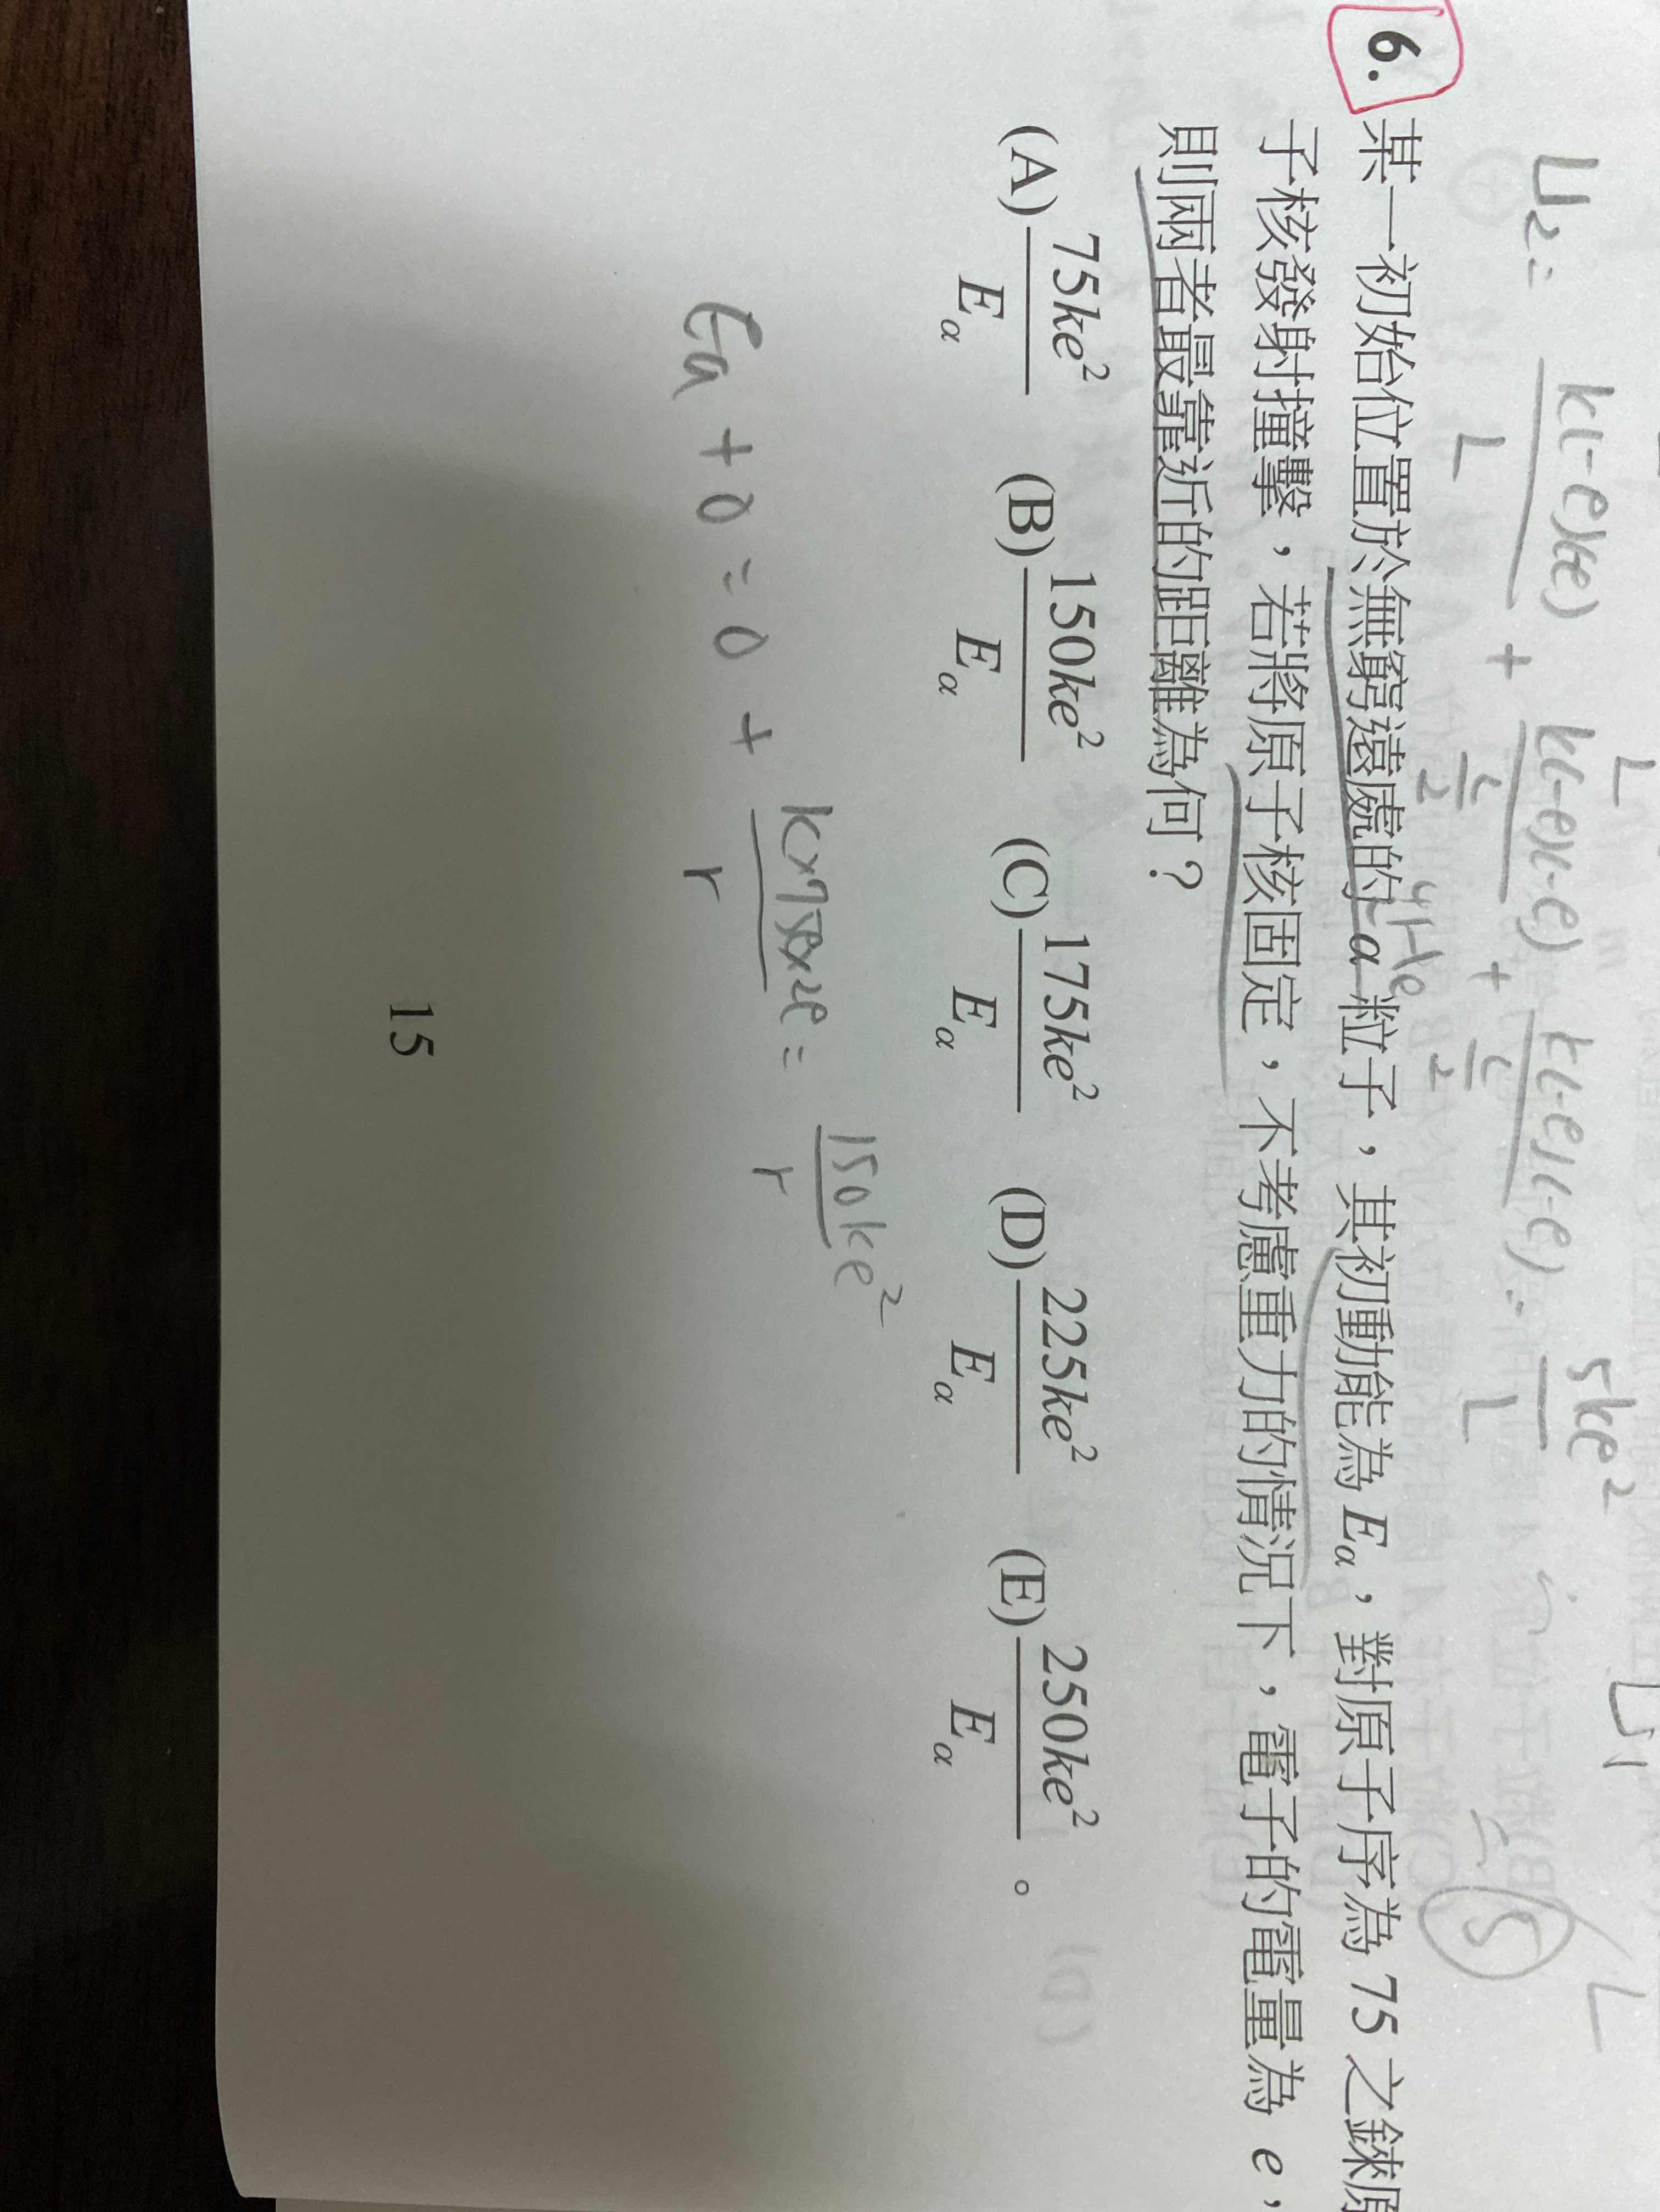 U₂ = k(-e)(e)/L + k(-e)(-e)/(L/2) + k(-e)(-e)/(L/2) = 5ke²/L
⁴He
6. 某一初始位置於無窮遠處的 α 粒子，其初動能為 Eα，對原子序為 75 之錸原
子核發射撞擊，若將原子核固定，不考慮重力的情況下，電子的電量為 e，
則兩者最靠近的距離為何？
(A) 75ke²/Eα (B) 150ke²/Eα (C) 175ke²/Eα (D) 225ke²/Eα (E) 250ke²/Eα 。
Ea + 0 = 0 + k×75e×2e/r = 150ke²/r
15